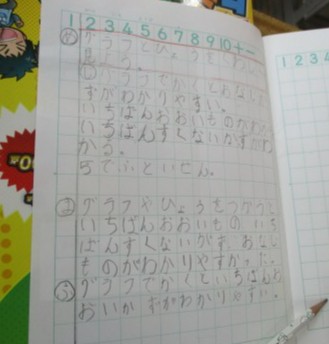 1 2 3 4 5 6 7 8 9 10 11
め グラフとひょうをくわしく
見よう。
じ グラフでかくとおなじか
ずがわかりやすい。
いちばんおおいものがわかり
いちばんすくないかずがわ
かる。
5てぶといせん。
ま グラフやひょうをつかうと
いちばんおおいもの いち
ばんすくないかず、おなじ
ものがわかりやすかった。
ふ グラフでかくといちばんお
おいかずがわかりやすい。
1 2 3 4